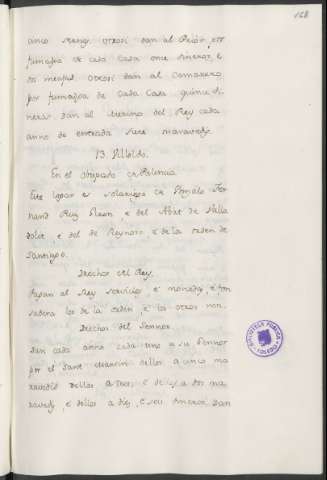 168
cinco maravs. Otrosi dan al Prior, por
fumazga de cada casa once dineros, e
dos meajas. Otrosi dan al Camarero
por fumazga de cada casa quince di-
neros. Dan al Merino del Rey cada
anno de entrada siete maravedis.
13. Villoldo.
En el obispado de Palencia.
Este logar es solariego de Gonzalo Fer-
rand Ruiz Duen, e del Abat de Valla
dolit, e del de Reynoso e de la orden de
Santiago.
Derechos del Rey.
Pagan al Rey servicios, e monedas, e fon
sadera los de la orden, e los otros non.
Derechos del Sennor.
Dan cada anno cada uno a su Sennor
por el Sant Martin dellos a cinco ma
ravedis dellos a tres, e de y a dos ma
ravedis, e dellos a diez, e seis dineros. Dan
BIBLIOTECA PUBLICA
TOLEDO